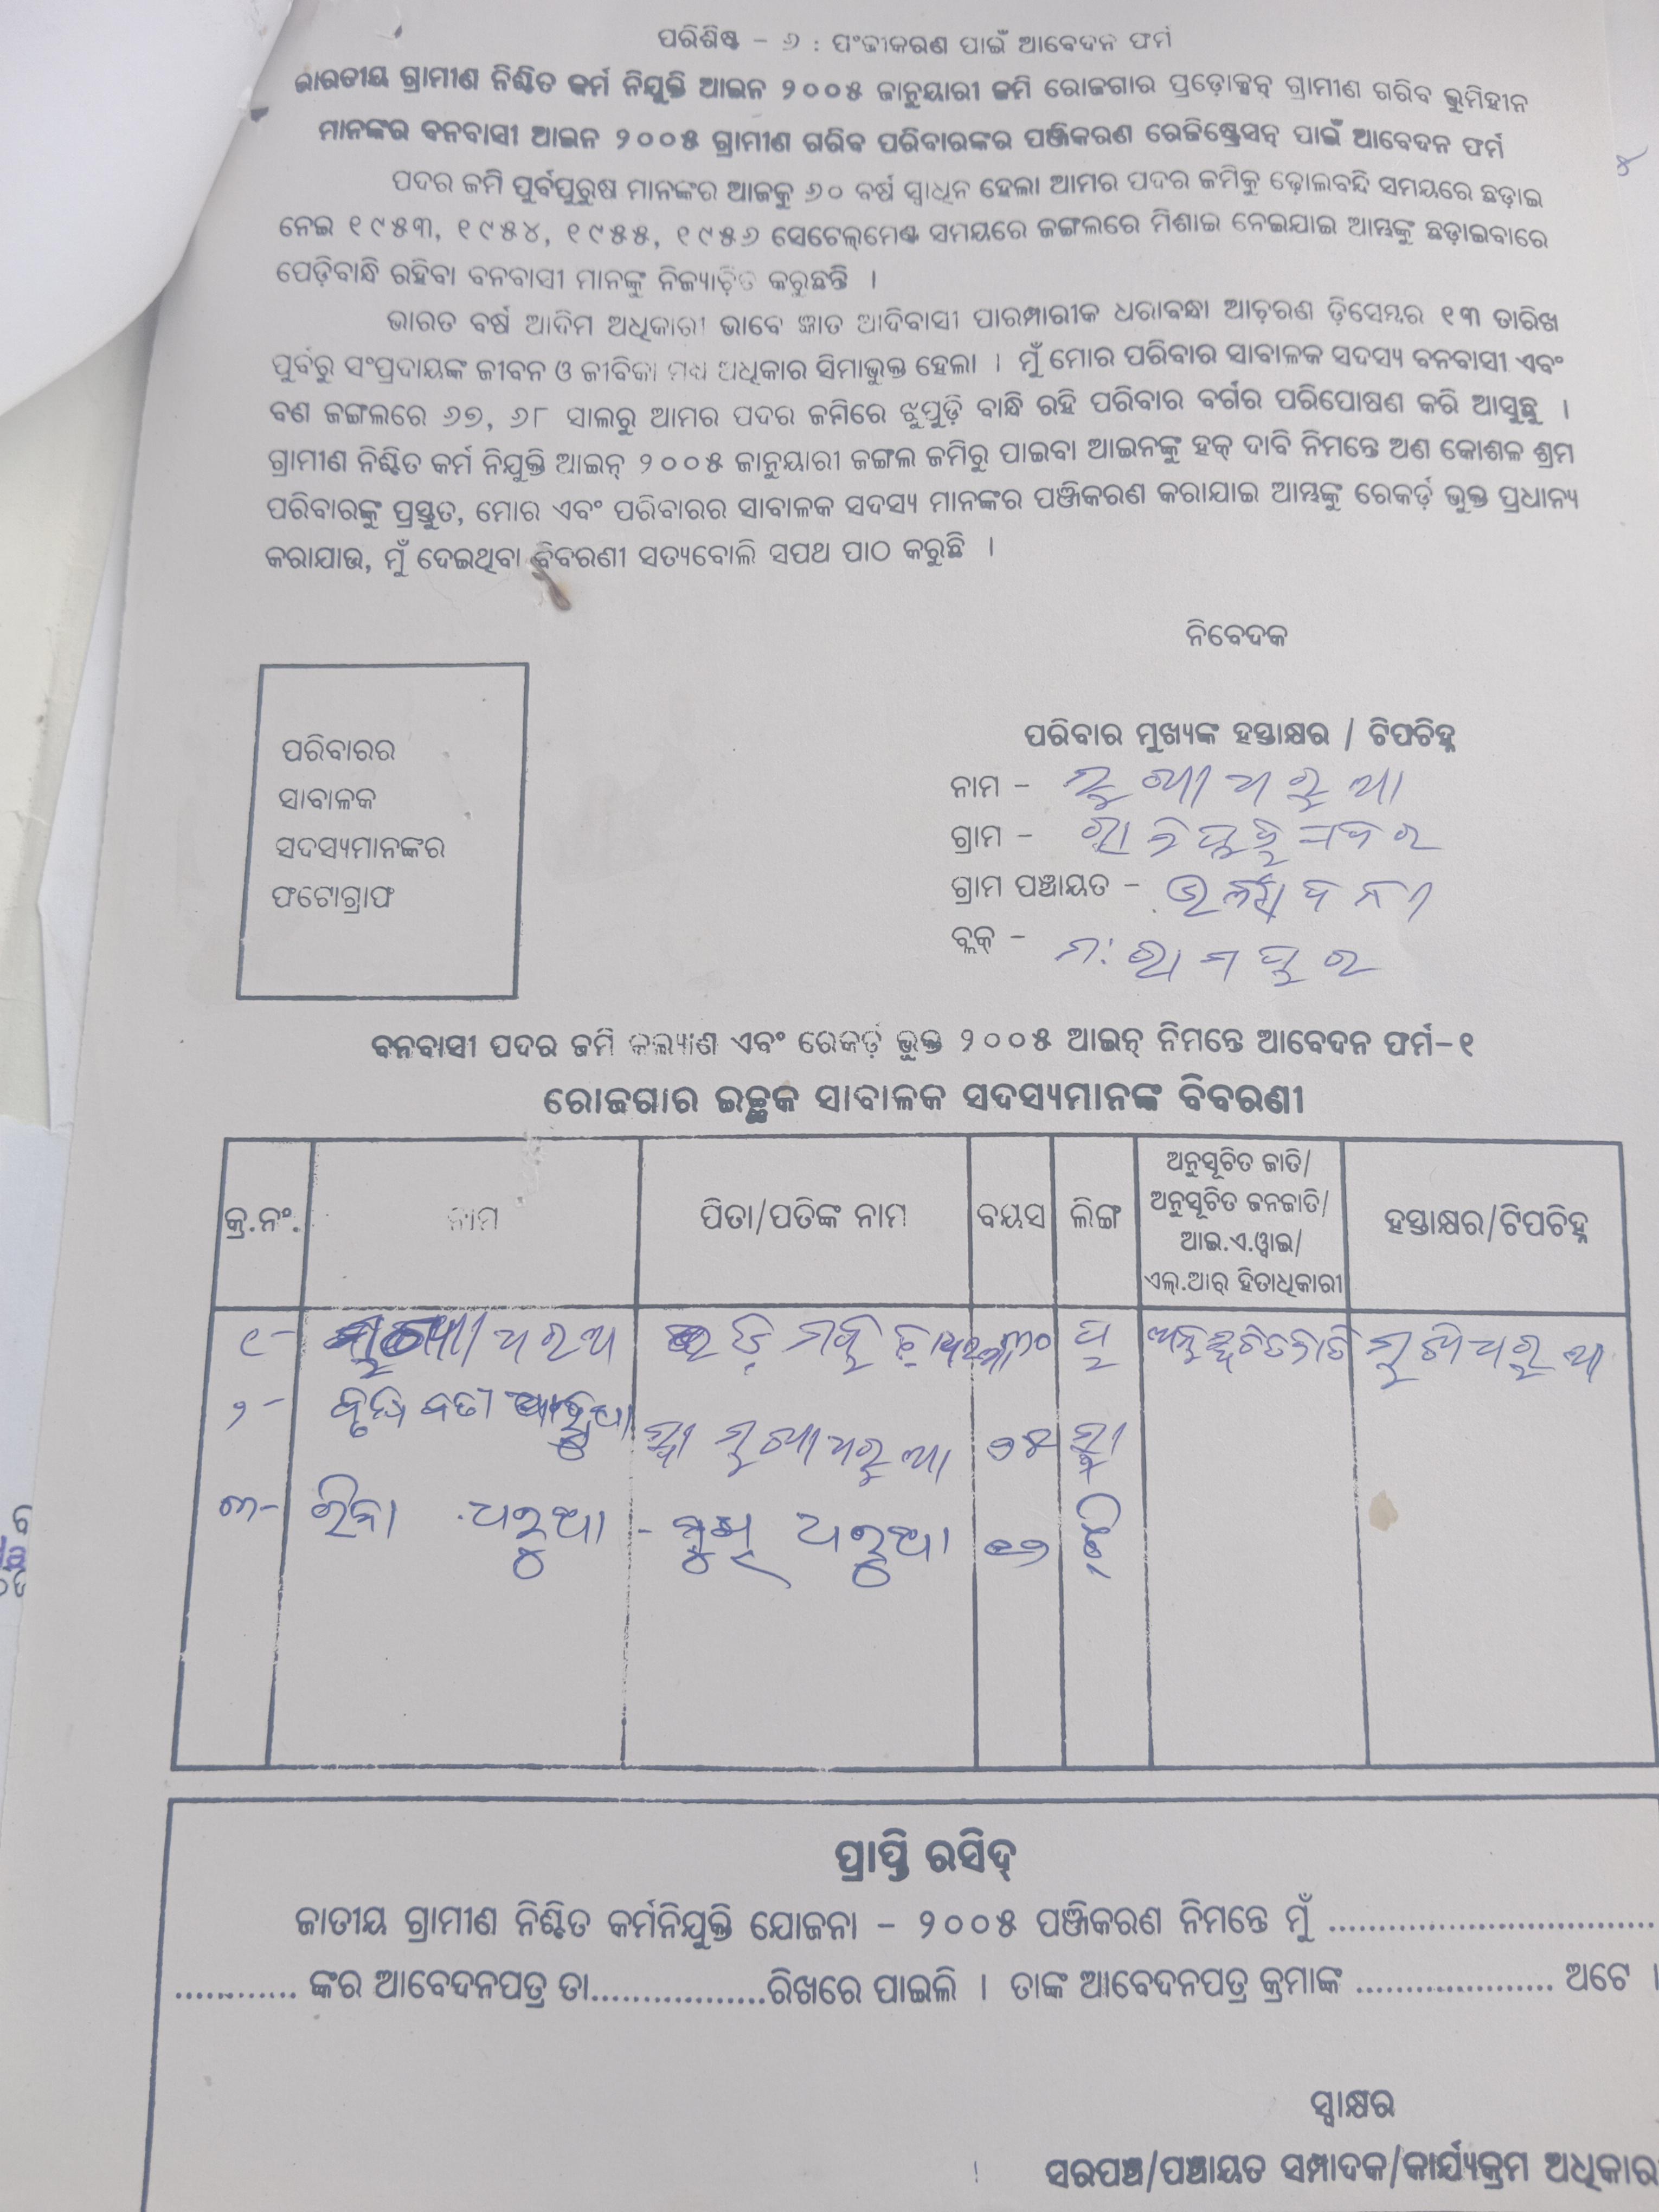 ପରିଶିଷ୍ଟ - ୬ : ପଂଜୀକରଣ ପାଇଁ ଆବେଦନ ଫର୍ମ
ଭାରତୀୟ ଗ୍ରାମୀଣ ନିଶ୍ଚିତ କର୍ମ ନିଯୁକ୍ତି ଆଇନ ୨୦୦୫ ଜାନୁୟାରୀ ଜମି ରୋଜଗାର ପ୍ରଡ଼ୋକ୍ସନ୍ ଗ୍ରାମୀଣ ଗରିବ ଭୁମିହୀନ
ମାନଙ୍କର ବନବାସୀ ଆଇନ ୨୦୦୫ ଗ୍ରାମୀଣ ଗରିବ ପରିବାରଙ୍କର ପଞ୍ଜିକରଣ ରେଜିଷ୍ଟ୍ରେସନ୍ ପାଇଁ ଆବେଦନ ଫର୍ମ
ପଦର ଜମି ପୁର୍ବପୁରୁଷ ମାନଙ୍କର ଆଜକୁ ୬୦ ବର୍ଷ ସ୍ୱାଧିନ ହେଲା ଆମର ପଦର ଜମିକୁ ଢ଼ୋଲବନ୍ଦି ସମୟରେ ଛଡ଼ାଇ
ନେଇ ୧୯୫୩, ୧୯୫୪, ୧୯୫୫, ୧୯୫୬ ସେଟେଲ୍‌ମେଣ୍ଟ ସମୟରେ ଜଙ୍ଗଲରେ ମିଶାଇ ନେଇଯାଇ ଆମ୍ଭଙ୍କୁ ଛଡ଼ାଇବାରେ
ପେଡ଼ିବାନ୍ଧି ରହିବା ବନବାସୀ ମାନଙ୍କୁ ନିଜ୍ୟାଚ଼ିତ କରୁଛନ୍ତି ।
ଭାରତ ବର୍ଷ ଆଦିମ ଅଧିକାରୀ ଭାବେ ଜ୍ଞାତ ଆଦିବାସୀ ପାରମ୍ପାରୀକ ଧରାବନ୍ଧା ଆଚ଼ରଣ ଡ଼ିସେମ୍ବର ୧୩ ତାରିଖ
ପୁର୍ବରୁ ସଂପ୍ରଦାୟଙ୍କ ଜୀବନ ଓ ଜୀବିକା ମଧ୍ୟ ଅଧିକାର ସିମାଭୁକ୍ତ ହେଲା । ମୁଁ ମୋର ପରିବାର ସାବାଳକ ସଦସ୍ୟ ବନବାସୀ ଏବଂ
ବଣ ଜଙ୍ଗଲରେ ୬୭, ୬୮ ସାଲରୁ ଆମର ପଦର ଜମିରେ ଝୁପୁଡ଼ି ବାନ୍ଧି ରହି ପରିବାର ବର୍ଗର ପରିପୋଷଣ କରି ଆସୁଛୁ ।
ଗ୍ରାମୀଣ ନିଶ୍ଚିତ କର୍ମ ନିଯୁକ୍ତି ଆଇନ୍ ୨୦୦୫ ଜାନୁୟାରୀ ଜଙ୍ଗଲ ଜମିରୁ ପାଇବା ଆଇନଙ୍କୁ ହକ୍ ଦାବି ନିମନ୍ତେ ଅଣ କୋଶଳ ଶ୍ରମ
ପରିବାରଙ୍କୁ ପ୍ରସ୍ତୁତ, ମୋର ଏବଂ ପରିବାରର ସାବାଳକ ସଦସ୍ୟ ମାନଙ୍କର ପଞ୍ଜିକରଣ କରାଯାଇ ଆମ୍ଭଙ୍କୁ ରେକର୍ଡ଼ ଭୁକ୍ତ ପ୍ରଧାନ୍ୟ
କରାଯାଉ, ମୁଁ ଦେଇଥିବା ବିବରଣୀ ସତ୍ୟବୋଲି ସପଥ ପାଠ କରୁଛି ।
ନିବେଦକ
ପରିବାରର
ସାବାଳକ
ସଦସ୍ୟମାନଙ୍କର
ଫଟୋଗ୍ରାଫ
ପରିବାର ମୁଖ୍ୟଙ୍କ ହସ୍ତାକ୍ଷର / ଟିପଚିହ୍ନ
ନାମ -
ଗ୍ରାମ -
ଗ୍ରାମ ପଞ୍ଚାୟତ -
ବ୍ଲକ୍ - ମ: ରାମପୁର
ବନବାସୀ ପଦର ଜମି କଲ୍ୟାଣ ଏବଂ ରେକର୍ଡ଼ ଭୁକ୍ତ ୨୦୦୫ ଆଇନ୍ ନିମନ୍ତେ ଆବେଦନ ଫର୍ମ-୧
ରୋଜଗାର ଇଚ୍ଛୁକ ସାବାଳକ ସଦସ୍ୟମାନଙ୍କ ବିବରଣୀ
କ୍ର.ନଂ. ନାମ ପିତା/ପତିଙ୍କ ନାମ ବୟସ ଲିଙ୍ଗ ଅନୁସୂଚିତ ଜାତି/ ଅନୁସୂଚିତ ଜନଜାତି/ ଆଇ.ଏ.ୱାଇ/ ଏଲ୍.ଆର୍ ହିତାଧିକାରୀ ହସ୍ତାକ୍ଷର/ଟିପଚିହ୍ନ
୧- ୩୦ ପୁ ଅନୁସୂଚିତ ଜାତି
୨- ସ୍ତ୍ରୀ
୩- ରିନା
ପ୍ରାପ୍ତି ରସିଦ୍
ଜାତୀୟ ଗ୍ରାମୀଣ ନିଶ୍ଚିତ କର୍ମନିଯୁକ୍ତି ଯୋଜନା - ୨୦୦୫ ପଞ୍ଜିକରଣ ନିମନ୍ତେ ମୁଁ ................................
............ ଙ୍କର ଆବେଦନପତ୍ର ତା.................ରିଖରେ ପାଇଲି । ତାଙ୍କ ଆବେଦନପତ୍ର କ୍ରମାଙ୍କ .................... ଅଟେ ।
ସ୍ୱାକ୍ଷର
ସରପଞ୍ଚ/ପଞ୍ଚାୟତ ସମ୍ପାଦକ/କାର୍ଯ୍ୟକ୍ରମ ଅଧିକାର